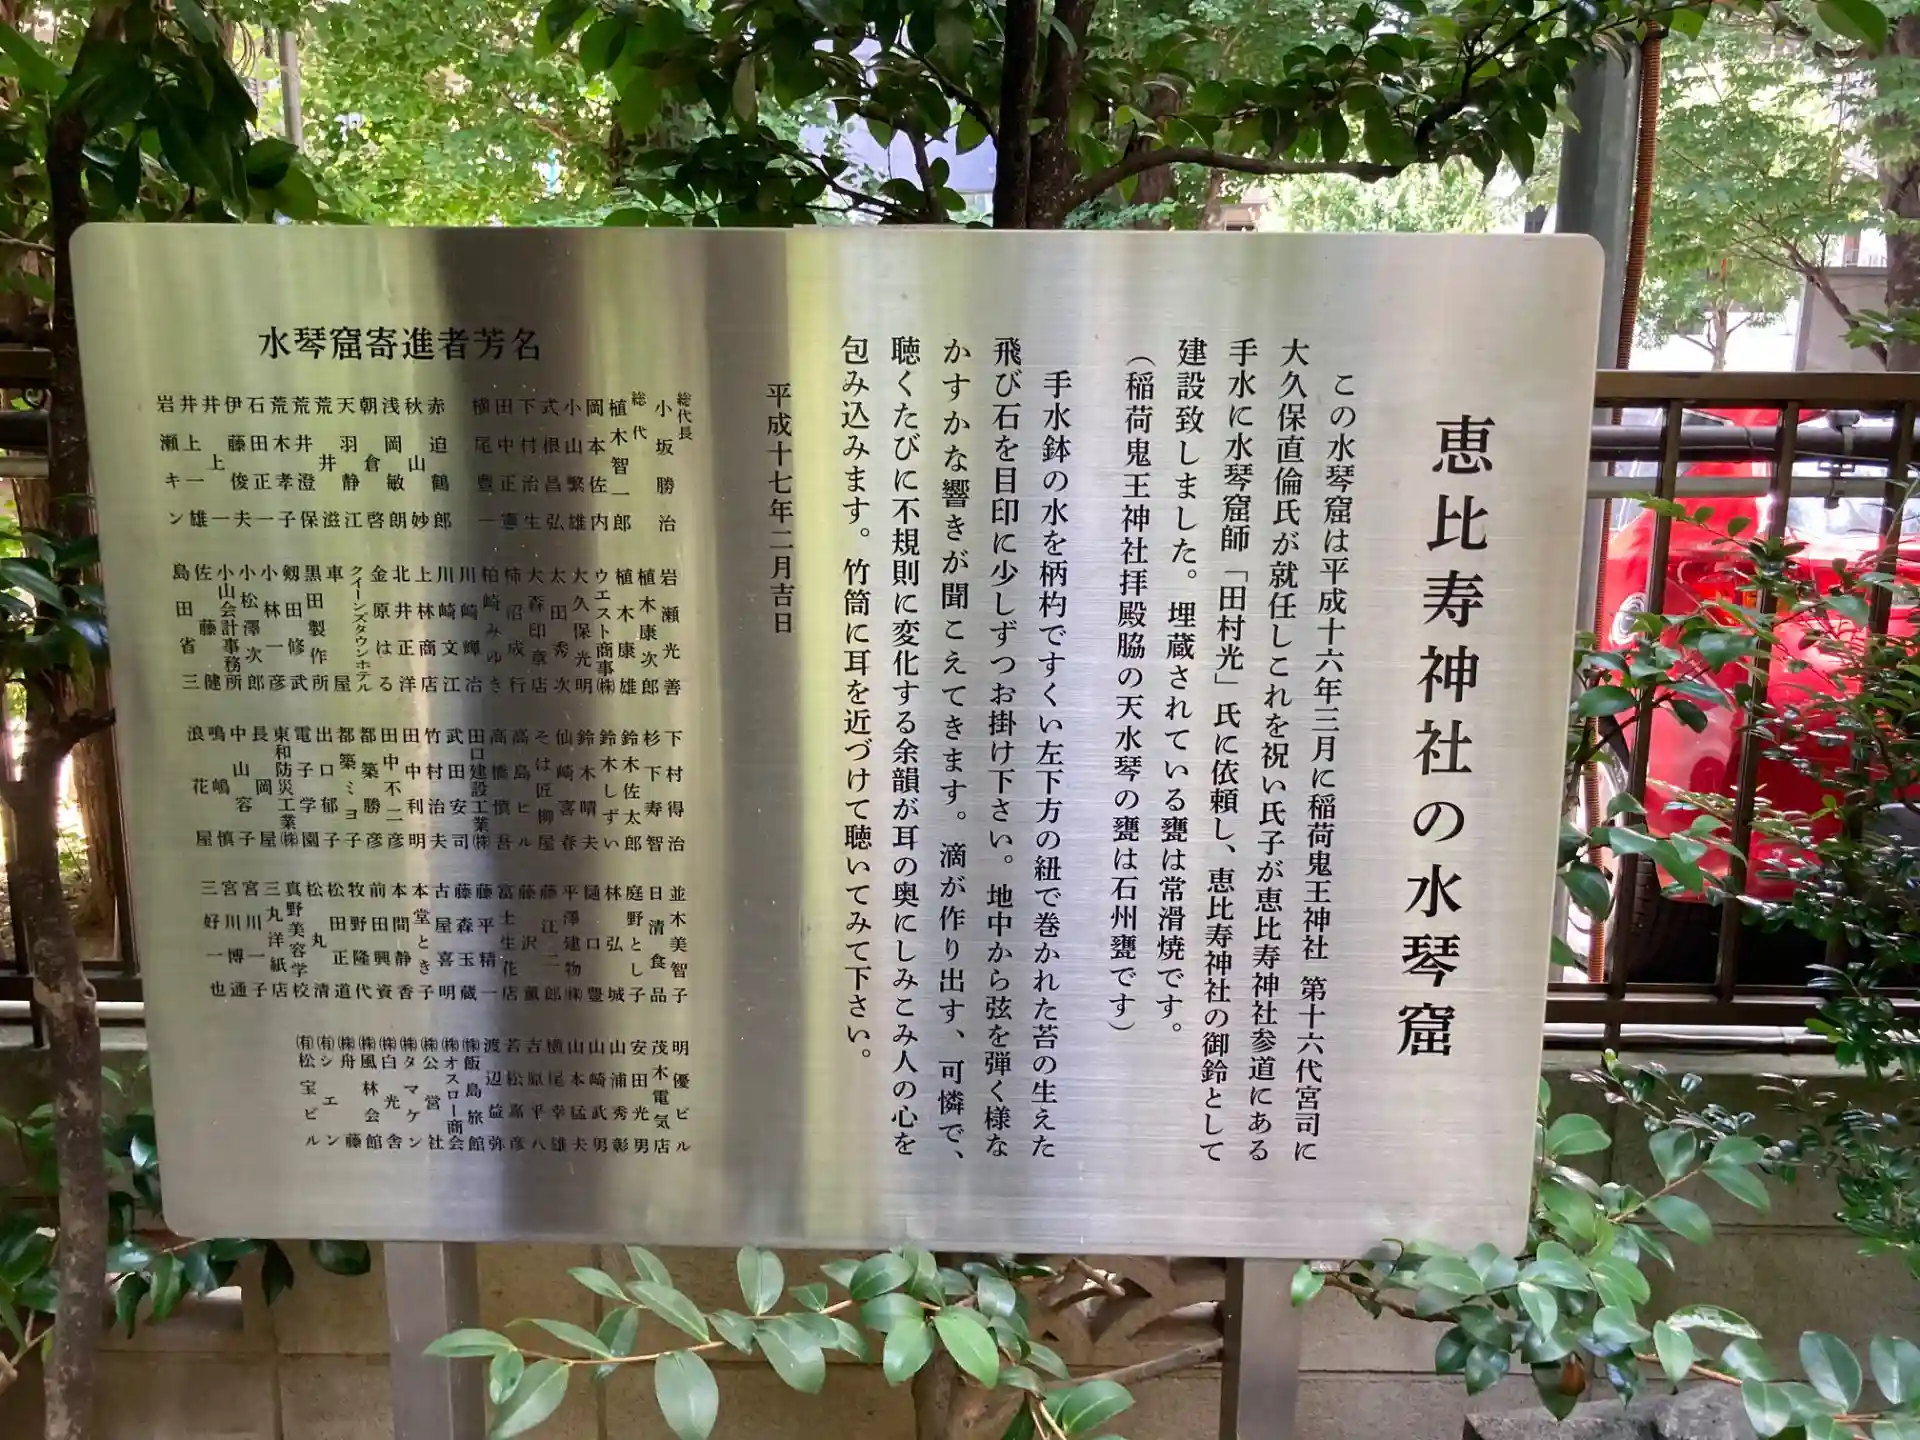 恵比寿神社の水琴窟
この水琴窟は平成十六年三月に稲荷鬼王神社 第十六代宮司に
大久保直倫氏が就任しこれを祝い氏子が恵比寿神社参道にある
手水に水琴窟師「田村光」氏に依頼し、恵比寿神社の御鈴として
建設致しました。埋蔵されている甕は常滑焼です。
(稲荷鬼王神社拝殿脇の天水琴の甕は石州甕です)
手水鉢の水を柄杓ですくい左下方の紐で巻かれた苔の生えた
飛び石を目印に少しずつお掛け下さい。地中から弦を弾く様な
かすかな響きが聞こえてきます。滴が作り出す、可憐で、
聴くたびに不規則に変化する余韻が耳の奥にしみこみ人の心を
包み込みます。竹筒に耳を近づけて聴いてみて下さい。
平成十七年二月吉日
水琴窟寄進者芳名
総代長
小坂勝治
総代
植木智一郎
岡本佐内
小山繁雄
式根昌弘
下村治生
田中正憲
横尾豊一
赤迫鶴郎
秋山妙
浅岡敏朗
朝倉啓
天羽静江
荒井滋
荒井澄保
荒木孝子
石田正一
伊藤俊夫
井上一
井上一雄
岩瀬キン
岩瀬光善
植木康次郎
植木康雄
ウエスト商事㈱
大久保光明
太田秀次
大森印章店
柿沼成行
柏崎みゆき
川崎輝治
川崎文江
上林商店
北井正洋
金原はる
クイーンズタウンホテル
車屋
黒田製作所
剱田修武
小林一彦
小松澤次郎
小山会計事務所
佐藤健
島田省三
下村得治
杉下寿智
鈴木佐太郎
鈴木しずい
鈴木晴夫
仙崎喜春
そば匠柳屋
高島ヒル
高橋慎吾
田口建設工業㈱
武田安司
竹村治夫
田中利明
田中不二彦
都築勝彦
都築ミヨ子
出口郁子
電子学園
東和防災工業㈱
長岡屋
中山容子
鳴嶋慎
浪花屋
並木美智子
日清食品
庭野とし子
林弘城
樋口豊
平澤建物㈱
藤江二郎
藤沢薫
富士生花店
藤平精一
藤森玉蔵
古屋喜明
本堂とき子
本間静香
前田興資
牧野隆代
松田正道
松丸清
真野美容学校
三丸洋紙店
宮川一子
宮川博通
三好一也
明優ビル
茂木電気店
安田光男
山浦秀彰
山崎武男
山本猛夫
横尾幸雄
吉原平八
若松嘉彦
渡辺益弥
㈱飯島旅館
㈱オスロー商会
㈱公営社
㈱タマケン
㈱白光舎
㈱風林会館
㈱舟藤
㈲シエン
㈲松宝ビル